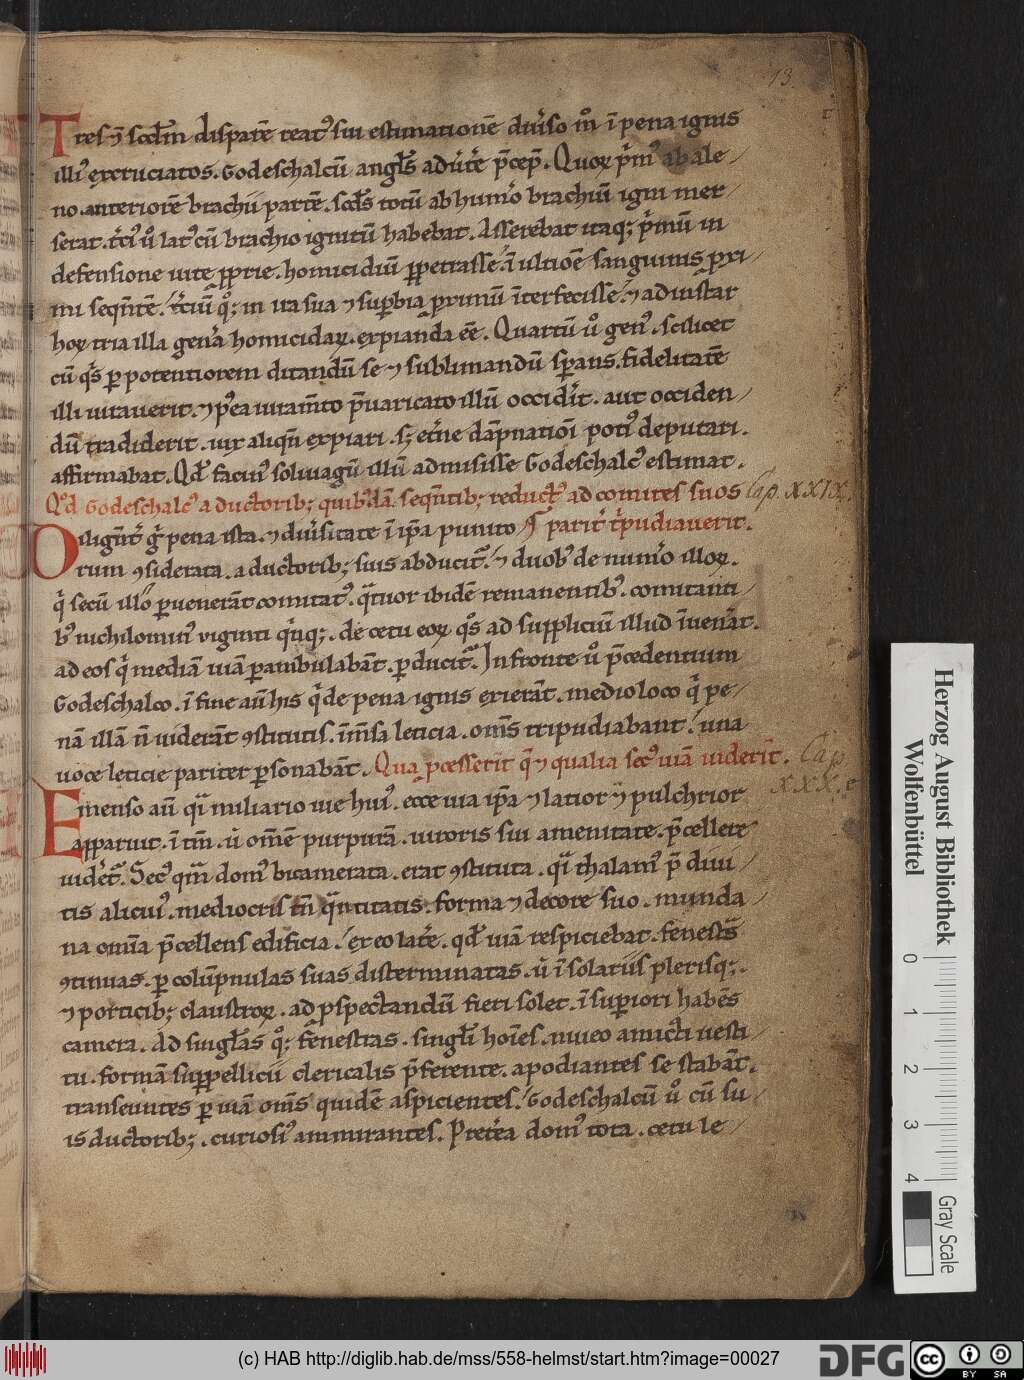 13
Tres ⁊ scd̄m disparē reat᷒ sui estimationē diuͥso m̊ ī pena ignis
illi᷒ excruciatos. Godeschalcū angl̄s adūt̄e p̄cep̄. Quoꝝ p̄m᷒ ab ale/
no anteriorē brachii partē. scd̄s totū ab humͦo brachiū igni mer/
serat. t̄ci᷒ u̾o lat᷒ cū brachio ignitū habebat. Asserebat itaq; p̄mū in
defensione uite ꝓprie. homicidiū ꝑpetrasse. ī ultiōe sanguinis ꝓxi/
mi seqn̄tē. t̄ciū q̊; in ira sua ⁊ suꝑbia primū īterfecisse. ⁊ ad instar
hoꝝ tria illa gen̄a homicidaꝝ. expianda ēe. Quartū u̾o gen᷒. scilicet
cū q̄s ꝑ potentiorem ditandū se ⁊ sublimandū sp̄ans. fidelitatē
illi iurauerit. ⁊ p᷒ea iuram̄to p̄uaricato illū occidͥit. aut occiden/
dū tradiderit. uix aliqn̄ expiari. s; et̄ne dāpnatiōi poti᷒ deputari.
affirmabat. Qd̄ facin᷒ soluuagū illū admisisse Godeschalc᷒ estimat.
Qd̄ Godeschalc᷒ a ductorib; quib᷒dā. seqn̄tib; reduct᷒ ad comites suos Cap. XXIX.
Diligent̄ ḡ pena ista. ⁊ diuͥsitate ī ip̄a punito ¶ parit̄ t̄pudiauerit.
rum ꝯsiderata. a ductorib; suis abducit᷒. ⁊ duob᷒ de numͦo illoꝝ.
q̄ secū illo ꝑuenerāt comitat᷒. q̄tuor ibidē remanentib᷒. comitanti
b᷒ nichilomin᷒ viginti q̄nq;. de cetu eoꝝ q̊s ad suppliciū illud īuenͥat.
ad eos q̄ mediā uiā ꝑambulabāt. ꝑducit᷒. In fronte u̾o p̄cedentium
Godeschalco. ī fine aū his q̄ de pena ignis exierāt. medio loco q̄ pe/
nā illā n̄ uiderāt ꝯstitutis. īm̄sa leticia. om̄s tripudiabant. una
uoce leticie pariter ꝑsonabāt. Qua ꝓcesserit q̄ ⁊ qualia sec᷒ uiā uiderit. Cap
XXX.
Emenso aū q̄i miliario uie hui᷒. ecce uia ip̄a ⁊ latior ⁊ pulchrior
apparuit. ī tm̄. ū om̄ē purpurā. uiroris sui amenitate. p̄cellere
uidͥet᷒. Sec᷒ qm̄ dom᷒ bicamerata. erat ꝯstituta. q̄i thalam᷒ p̄ diui
tis alicui᷒. mediocris tn̄ q̄ntitatis. forma ⁊ decore suo. munda/
na om̄ia p̄cellens edificia. ex eo lat̄e. qd̄ uiā respiciebat. fenest̄s
ꝯtinuas. ꝑ colūpnulas suas disterminatas. ū ī solariis plerisq;.
⁊ porticib; claustroꝝ. ad ꝓspectandū fieri solet. ī suꝑiori habēs
camera. Ad singl̄as q̊; fenestras. singl̄i hoīes. niueo amicti uesti/
tu. formā suppellicii clericalis p̄ferente. apodiantes se stabāt.
transeuntes ꝑ uiā om̄s quidē aspicientes. Godeschalcū u̾o cū su/
is ductorib;. curiosi᷒ ammirantes. Pretͥea dom᷒ tota. cetu le/
Herzog August Bibliothek
Wolfenbüttel
0 1 2 3 4
Gray Scale
(c) HAB http://diglib.hab.de/mss/558-helmst/start.htm?image=00027
DFG
cc BY SA